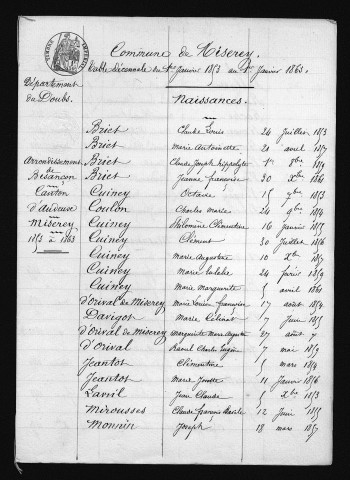 Commune de Miserey.
Table Décennale du 1er Janvier 1853 au 1er Janvier 1863.
Département
du Doubs.
Naissances.
Arrondissement
de
Besançon
Canton
d'Audeux
Miserey
1853 à 1863
Briet Claude Louis 24 Juillet 1853
Briet Marie Antoinette 21 avril 1857
Briet Claude Joseph hippolyte 1er 8bre
Briet Jeanne françoise 30 Xbre
Cuiney Octave 15 7bre 1853
Coulon Charles Marie 24 9bre 1854
Cuiney Philomène Clémentine 16 janvier 1855
Cuiney Clément 30 Juillet 1856
Cuiney Marie Augustine 10 Xbre 1857
Cuiney Marie Eulalie 24 février 1859
Cuiney Marie Marguerite 5 avril 1861
d'Orival de Miserey Marie 17 août 1854
Davigot Marie 7 Juin 1855
d'Orival de Miserey Marguerite Marie Augustine 27 août
d'Orival Raoul Charles Eugène 7 mai 1859
Jeantot Clémentine 5 mars 1854
Jeantot Marie Josette 11 Janvier 1856
Lavil Jean Claude 5 Xbre 1853
Mirousses Claude françois 12 Juin 1855
Monnin Joseph 18 mars 1857